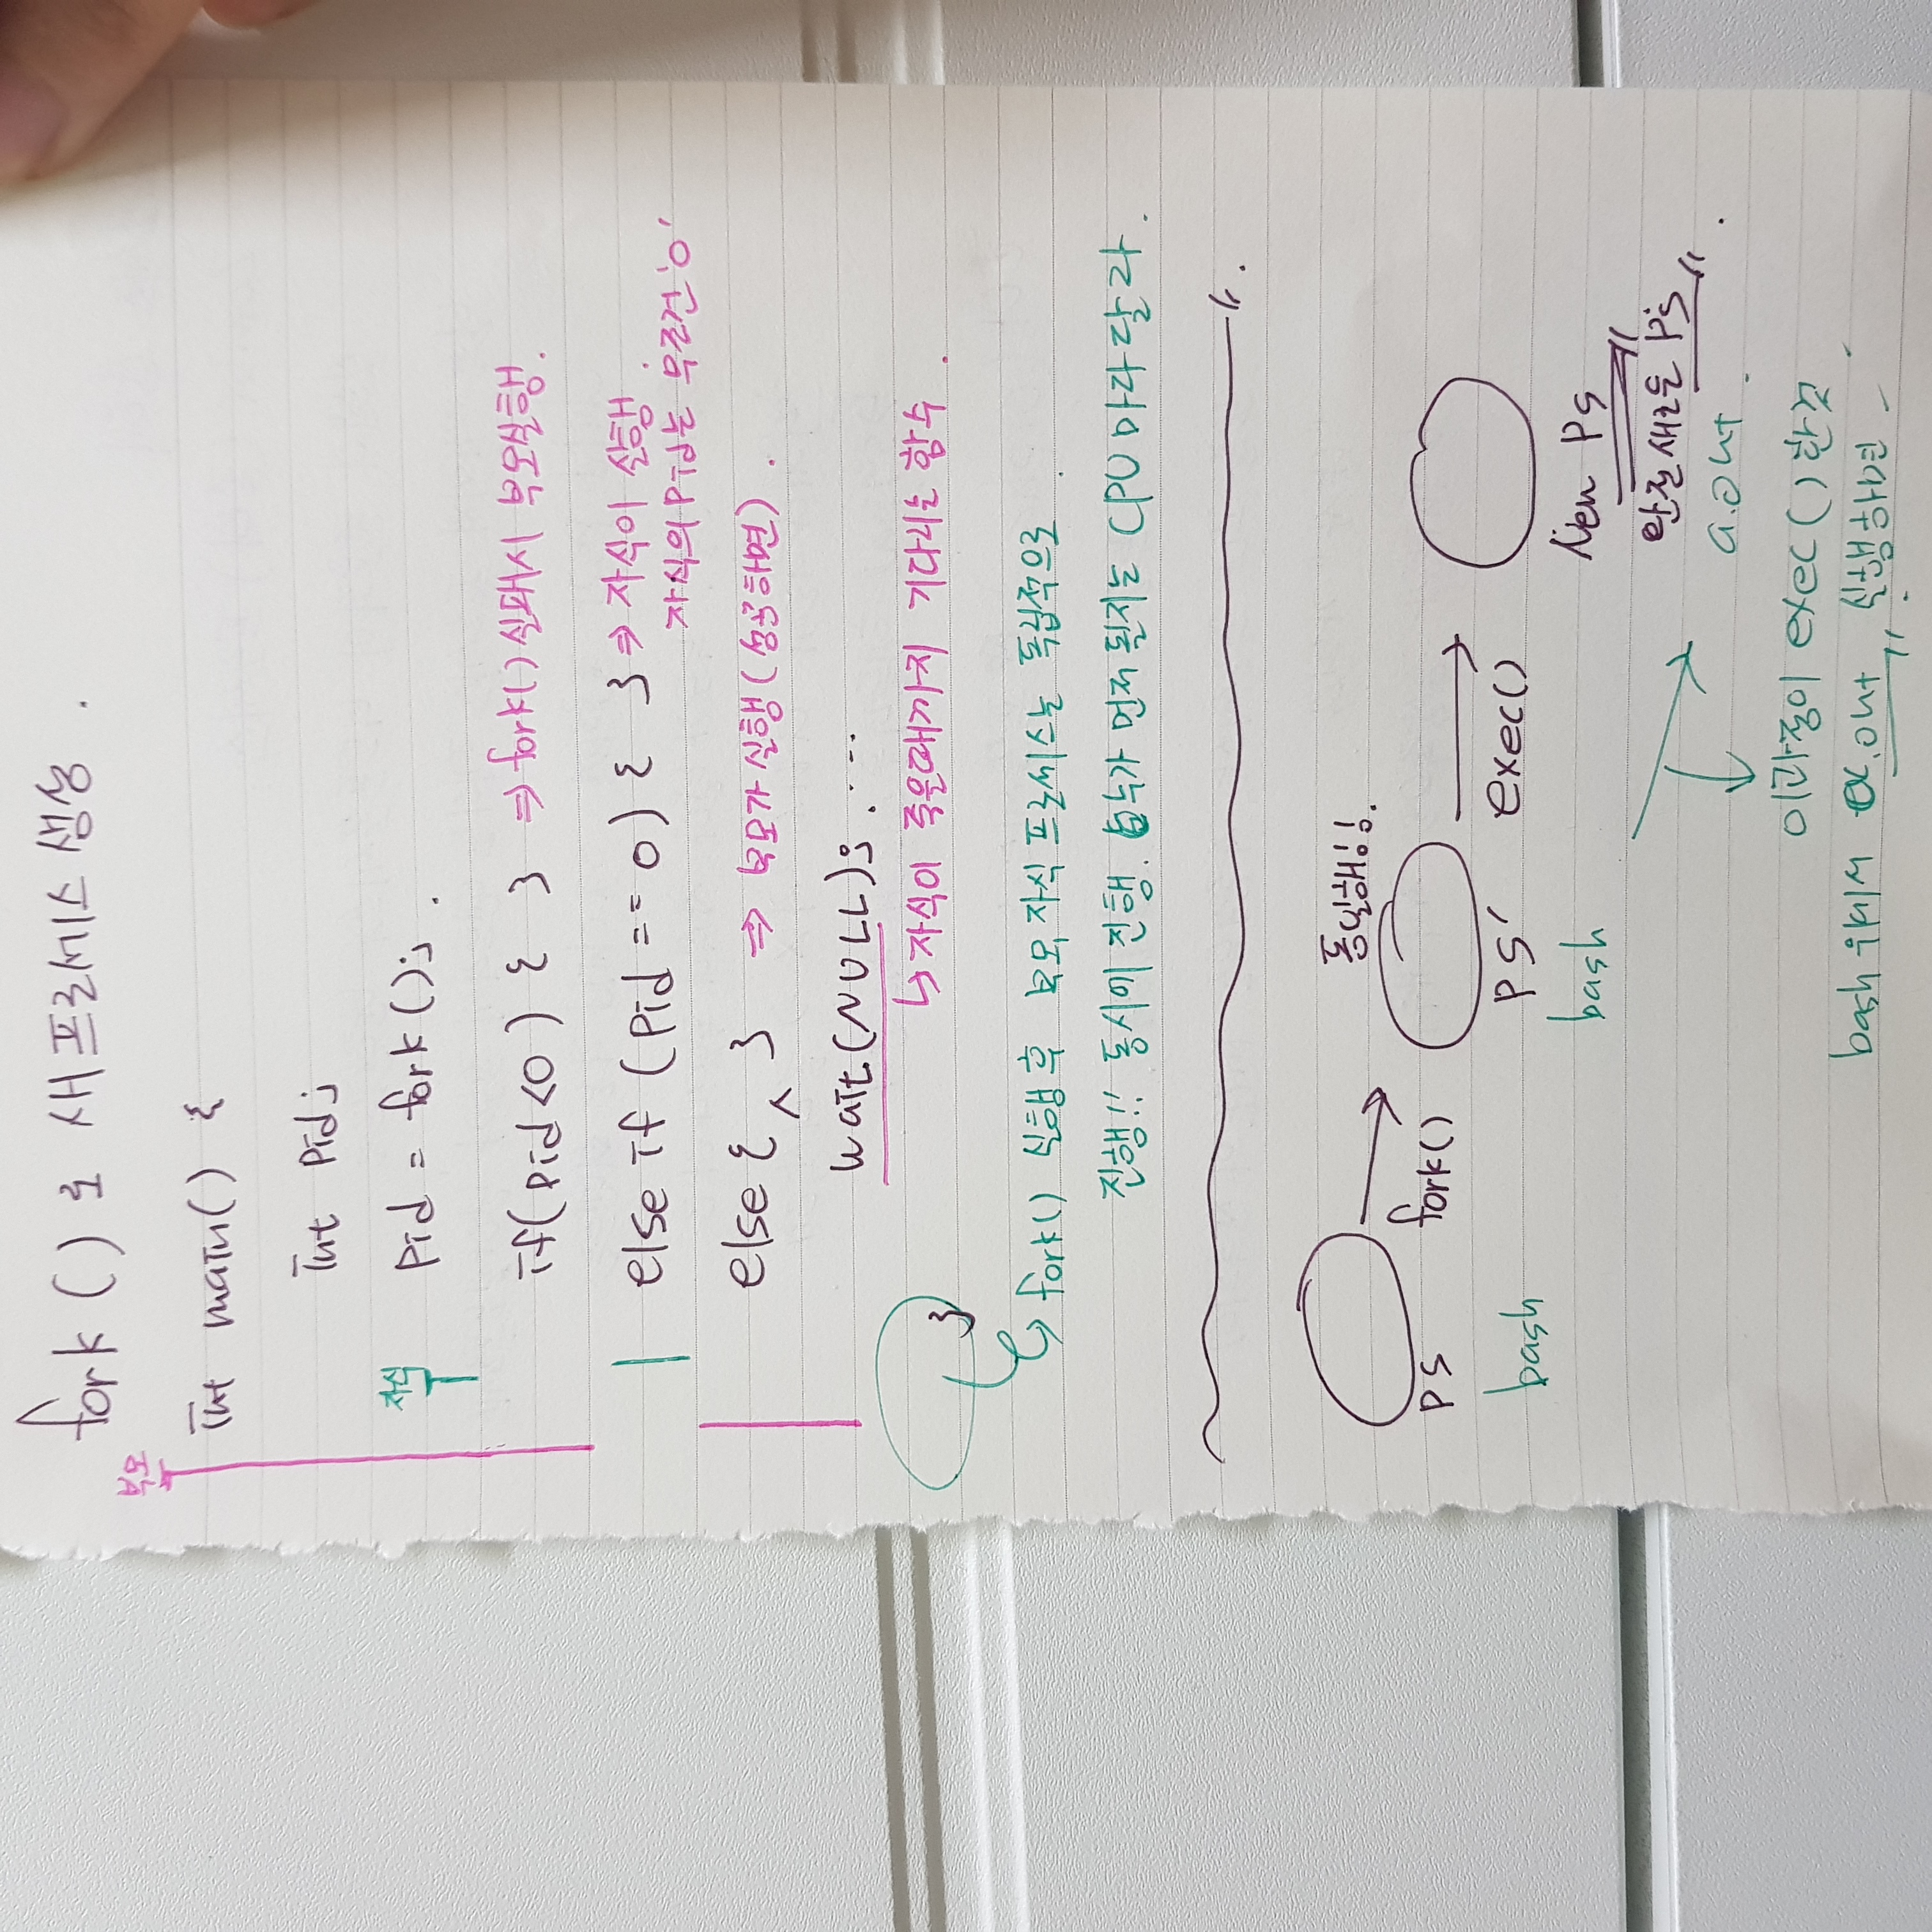 fork () 로 새프로세스 생성.
부모
int main() {
int pid;
자식
pid = fork(); .
if(pid<0) { } ⇒ fork() 실패시 부모실행.
else if (pid == 0) { } ⇒ 자식이 실행.
자식의 pid는 무조건 '0'
else { ^ } ⇒ 부모가 실행(성공하면).
wait(NULL); . ...
↳ 자식이 죽을때까지 기다리는 함수.
}
↳ fork() 실행 후 부모, 자식 프로세스는 독립적으로
진행!! 동시에 진행. 누가 먼저 될지는 CPU 마다 달라.
동일해!!.
PS
fork()
PS'
exec()
bash
bash
New PS
완전 새로운 PS
a.out.
이과정이 exec() 한것
bash 위에서 a.out 실행하면